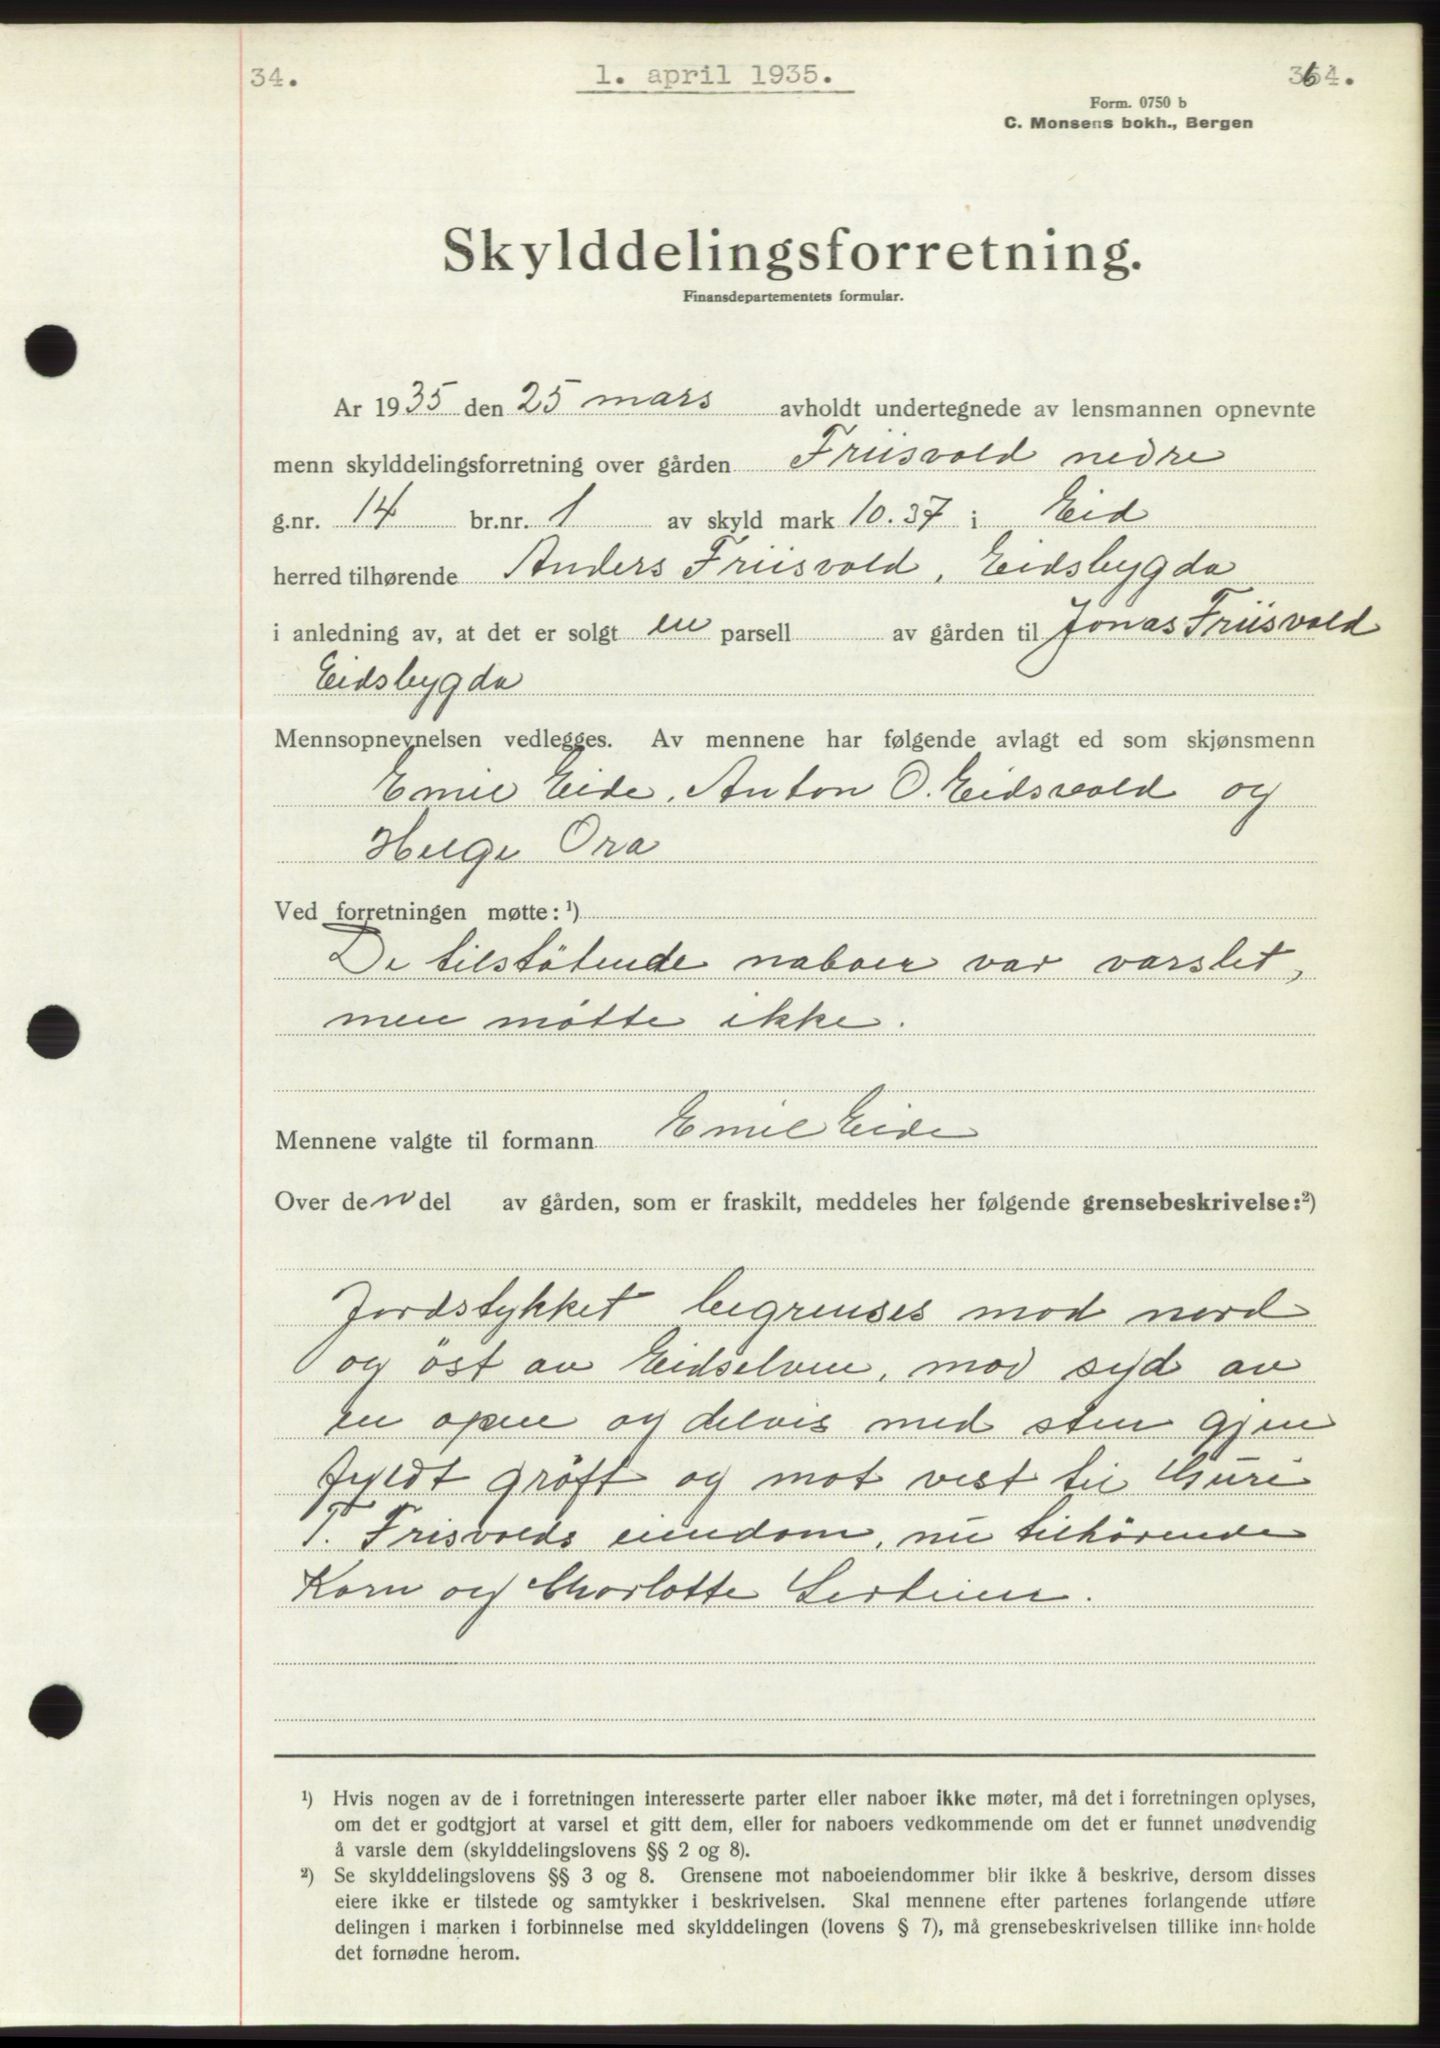 34.
1. april 1935.
364.
Form. 0750 b
C. Monsens bokh., Bergen
Skylddelingsforretning.
Finansdepartementets formular.
Ar 1935 den 25 mars avholdt undertegnede av lensmannen opnevnte
menn skylddelingsforretning over gården Friisvold nedre
g.nr. 14 br.nr. 1 av skyld mark 10.37 i Eid
herred tilhørende Anders Friisvold, Eidsbygda
i anledning av, at det er solgt en parsell av gården til Jonas Friisvold
Eidsbygda
Mennsopnevnelsen vedlegges. Av mennene har følgende avlagt ed som skjønsmenn
Emil Eide, Anton O. Eidsvold og
Helge Ora
Ved forretningen møtte: ¹)
De tilstötende naboer var varslet,
men mötte ikke.
Mennene valgte til formann Emil Eide
Over den del av gården, som er fraskilt, meddeles her følgende grensebeskrivelse:²)
Jordstykket begrenses mod nord
og öst av Eidselven, mod syd av
en open og delvis med sten gjen
fyldt gröft og mot vest til Guri
T. Frisvolds eiendom, nu tilhörende
Karn og Charlotte
¹) Hvis nogen av de i forretningen interesserte parter eller naboer ikke møter, må det i forretningen oplyses,
om det er godtgjort at varsel et gitt dem, eller for naboers vedkommende om det er funnet unødvendig
å varsle dem (skylddelingslovens §§ 2 og 8).
²) Se skylddelingslovens §§ 3 og 8. Grensene mot naboeiendommer blir ikke å beskrive, dersom disses
eiere ikke er tilstede og samtykker i beskrivelsen. Skal mennene efter partenes forlangende utføre
delingen i marken i forbinnelse med skylddelingen (lovens § 7), må grensebeskrivelsen tillike inneholde
det fornødne herom.